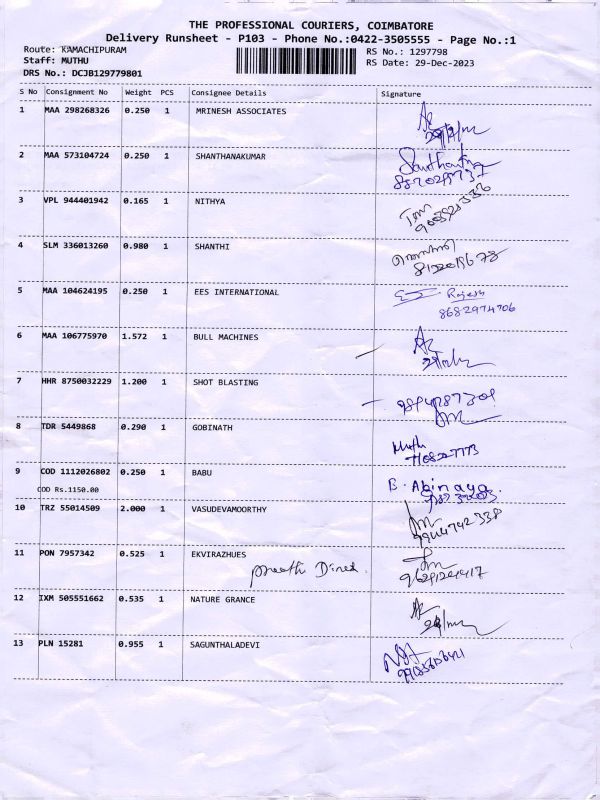 THE PROFESSIONAL COURIERS, COIMBATORE
Delivery Runsheet - P103 - Phone No.:0422-3505555 - Page No.:1
Route: KAMACHIPURAM RS No.: 1297798
Staff: MUTHU RS Date: 29-Dec-2023
DRS No.: DCJB129779801
S No Consignment No Weight PCS Consignee Details Signature
1 MAA 298268326 0.250 1 MRINESH ASSOCIATES
2 MAA 573104724 0.250 1 SHANTHANAKUMAR
3 VPL 944401942 0.165 1 NITHYA
4 SLM 336013260 0.980 1 SHANTHI
5 MAA 104624195 0.250 1 EES INTERNATIONAL Rajesh
8682974706
6 MAA 106775970 1.572 1 BULL MACHINES
7 HHR 8750032229 1.200 1 SHOT BLASTING
8 TDR 5449868 0.290 1 GOBINATH Muth
9 COD 1112026802 0.250 1 BABU B. Abinaya
COD Rs.1150.00
10 TRZ 55014509 2.000 1 VASUDEVAMOORTHY
9944742338
11 PON 7957342 0.525 1 EKVIRAZHUES
9629124417
12 IXM 505551662 0.535 1 NATURE GRANCE
13 PLN 15281 0.955 1 SAGUNTHALADEVI